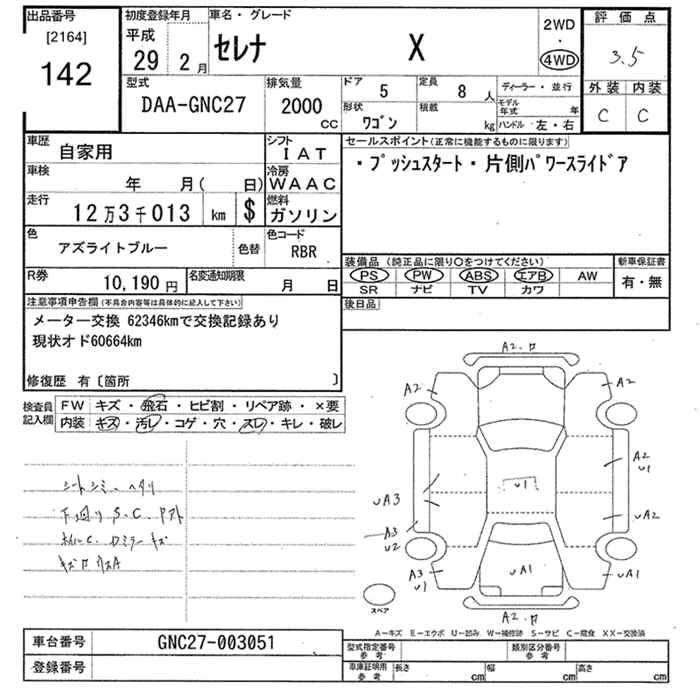 出品番号
[2164]
142
初度登録年月
平成
29 2月
車名・グレード
セレナ X
2WD
・
4WD
評価点
3.5
外装 内装
C C
型式
DAA-GNC27
排気量
2000
cc
ドア 5
定員 8 人
形状 ワゴン
積載 kg
ディーラー・並行
モデル年式 年
ハンドル 左・右
車歴 自家用
シフト IAT
車検 年 月( 日)
冷房 WAAC
走行 12万3千013 km $
燃料 ガソリン
色 アズライトブルー 色替
色コード RBR
R券 10,190円
名変通知期限 月 日
セールスポイント(正常に機能するものに限ります)
・プッシュスタート・片側パワースライドア
装備品(純正品に限り○をつけてください)
PS PW ABS エアB AW
SR ナビ TV カワ
新車保証書
有・無
後日品
注意事項申告欄(不具合内容等は具体的に記入して下さい)
メーター交換 62346kmで交換記録あり
現状オド60664km
修復歴 有〔箇所 〕
検査員記入欄
FW キズ・飛石・ヒビ割・リペア跡・×要
内装 キズ・汚レ・コゲ・穴・スレ・キレ・破レ
シートシミー ヘタリ
下廻り S.C.
A2
A2
A2
U1
A2
U1
UA3
UA2
A3
U2
A3
U1
UA1
UA1
A2
スペア
A－キズ E－エクボ U－凹み W－補修跡 S－サビ C－腐食 XX－交換済
車台番号 GNC27-003051
登録番号
型式指定番号 参考
類別区分番号 参考
車庫証明用 参考
長さ cm
幅 cm
高さ cm